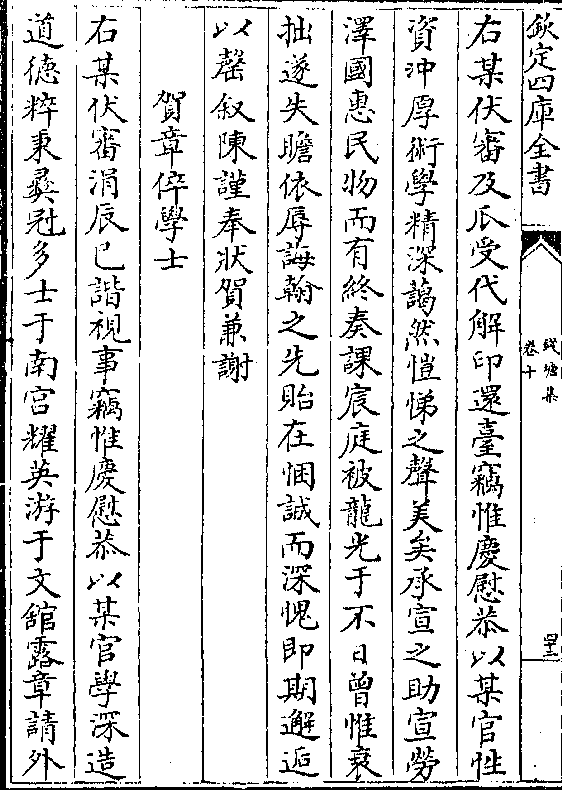 欽定四庫全書
錢塘集
卷十
四三
右某伏審及瓜受代解印還臺竊惟慶慰恭以某官性
資沖厚術學精深藹然愷悌之聲美矣承宣之助宣勞
澤國惠民物而有終奏課宸庭被龍光于不日曾惟衰
拙遂失瞻依辱誨翰之先貽在悃誠而深愧即期邂逅
以罄叙陳謹奉狀賀兼謝
賀章倅學士
右某伏審涓辰已諧視事竊惟慶慰恭以某官學深造
道德粹秉彛冠多士于南宫耀英游于文舘露章請外